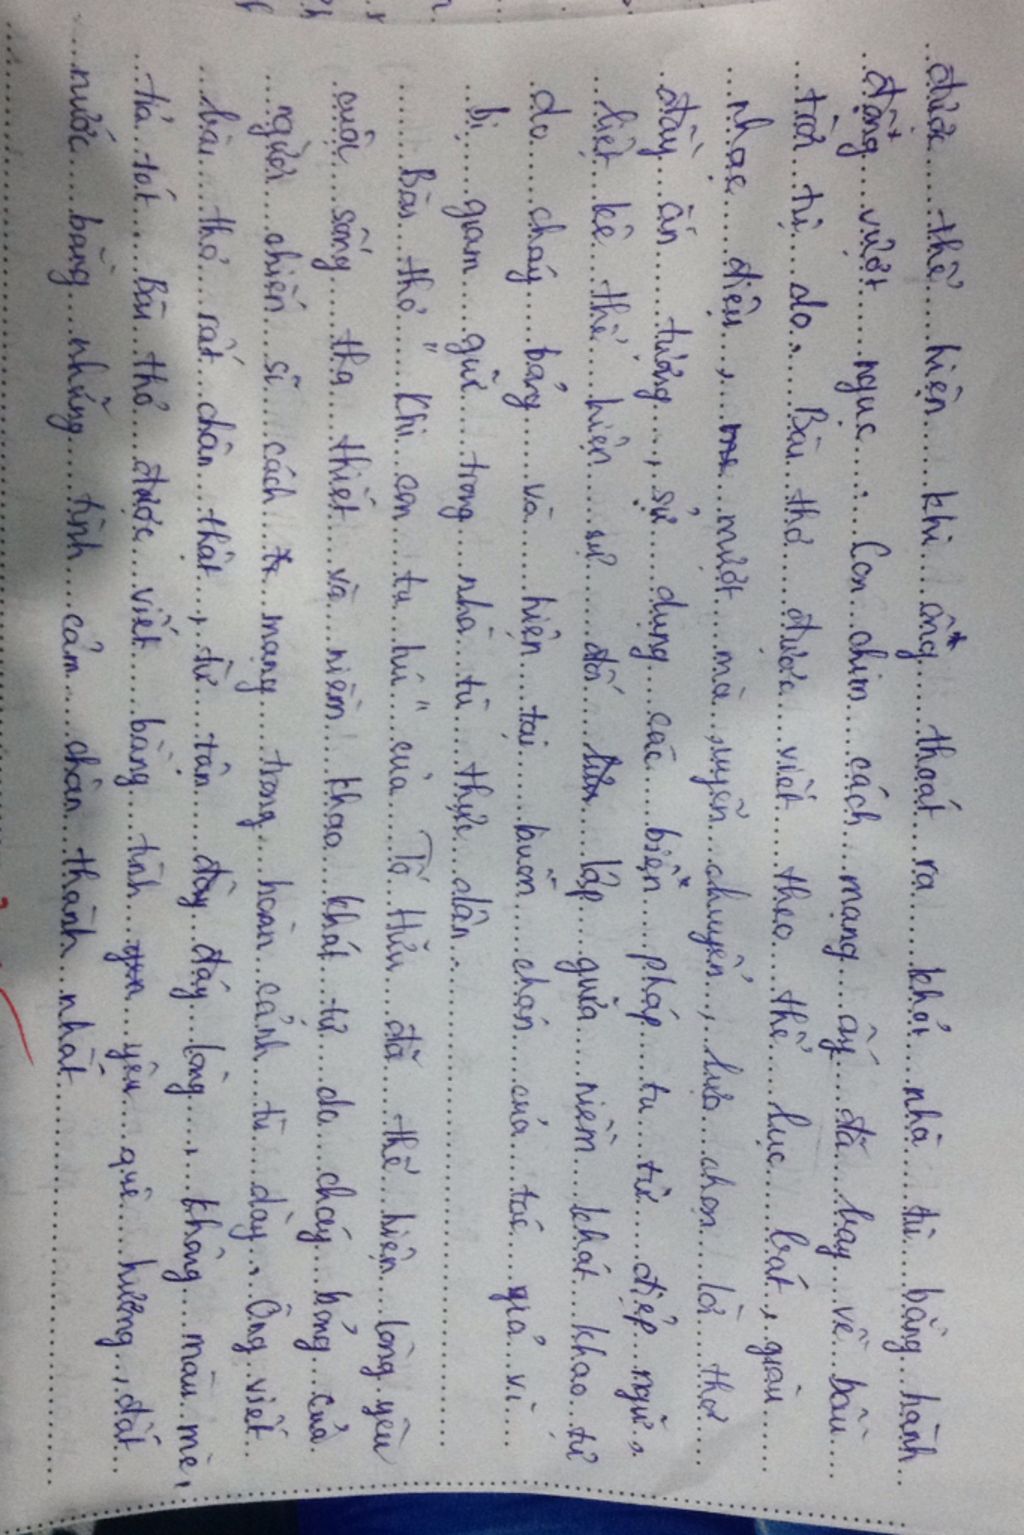 được thể hiện khi ông thoát ra khỏi nhà tù bằng hành
động vượt ngục. Con chim cách mạng ấy đã bay về bầu
trời tự do. Bài thơ được viết theo thể lục bát, giàu
nhạc điệu, mượt mà, uyển chuyển, lựa chọn lời thơ
đầy ấn tượng, sử dụng các biện pháp tu từ điệp ngữ,
liệt kê thể hiện sự đối lập giữa niềm khát khao tự
do cháy bỏng và hiện tại buồn chán của tác giả vì
bị giam giữ trong nhà tù thực dân.
Bài thơ " Khi con tu hú " của Tố Hữu đã thể hiện lòng yêu
cuộc sống tha thiết và niềm khao khát tự do cháy bỏng của
người chiến sĩ cách mạng trong hoàn cảnh tù đày. Ông viết
bài thơ rất chân thật, từ tận đây đáy lòng, không màu mè,
tả tót. Bài thơ được viết bằng tình yêu quê hương, đất
nước bằng những tình cảm chân thành nhất